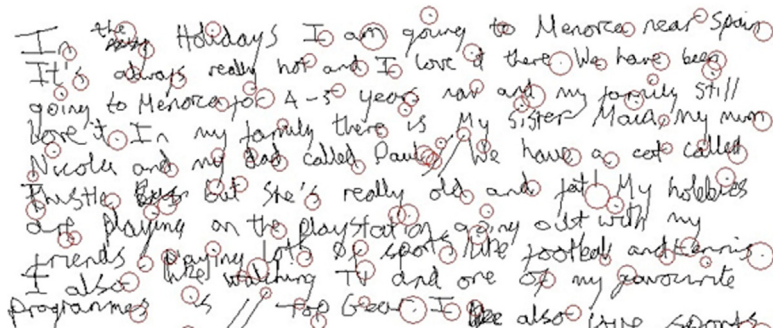 In the Holidays I am going to Menorca near Spain
It's always really hot and I love it there. We have been
going to Menorca for 4-5 years now and my family still
love it. In my family there is My sister Maid, my mum
Nicola and my dad called Paul. // We have a cat called
Thustle but she's really old and fat! My hobbies
are playing on the playstation, going out with my
friends playing lots of sports like football and tennis.
I also like watching TV and one of my favourite
programmes is // Top Gear. I also love sports